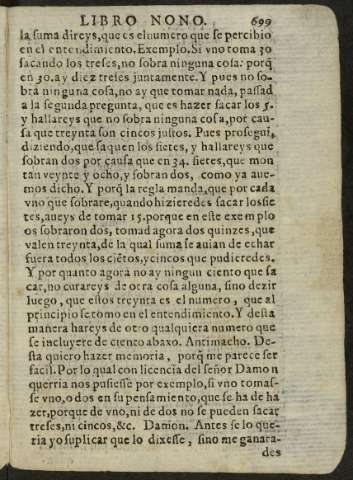 LIBRO NONO. 699
la suma direys, que es el numero que se percibio
en el entendimiento. Exemplo. Si vno toma 30
sacando los treses, no sobra ninguna cosa: porq̃
en 30. ay diez treses juntamente. Y pues no so-
bra ninguna cosa, no ay que tomar nada, passad
a la segunda pregunta, que es hazer sacar los 5.
y hallareys que no sobra ninguna cosa, por cau-
sa que treynta son cincos justos. Pues prosegui,
diziendo, que saquen los sietes, y hallareys que
sobran dos por causa que en 34. sietes, que mon
tan veynte y ocho, y sobran dos, como ya aue-
mos dicho. Y porq̃ la regla manda, que por cada
vno que sobrare, quando hizieredes sacar los sie
tes, aueys de tomar 15. porque en este exemplo
os sobraron dos, tomad agora dos quinzes, que
valen treynta, de la qual suma se auian de echar
fuera todos los ciẽtos, y cincos que pudieredes.
Y por quanto agora no ay ningun ciento que sa
car, no curareys de otra cosa alguna, sino dezir
luego, que estos treynta es el numero, que al
principio se tomo en el entendimiento. Y desta
manera hareys de otro qualquiera numero que
se incluyere de ciento abaxo. Antimacho. De-
sta quiero hazer memoria, porq̃ me parece ser
facil. Por lo qual con licencia del señor Damon
querria nos pusiesse por exemplo, si vno tomas-
se vno, o dos en su pensamiento, que se ha de ha
zer, porque de vno, ni de dos no se pueden sacar
treses, ni cincos, &c. Damon. Antes se lo que-
ria yo suplicar que lo dixesse, sino me ganara-
des